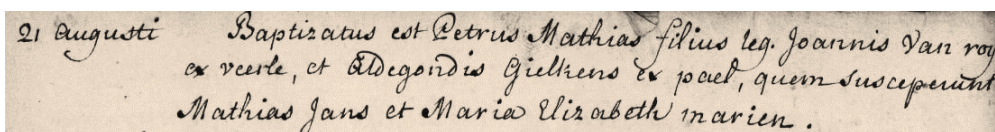 21 Augusti Baptizatus est Petrus Mathias filius leg. Joannis Van roy
ex veerle, et Aldegondis Gielkens ex pael, quem susceperunt
Mathias Jans et Maria Elizabeth marien.